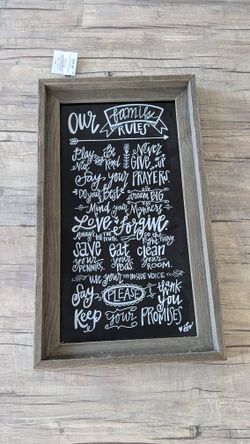 our family
RULES
Play Nice Be Kind Never GIVE UP
Say your PRAYERS
Do your Best DREAM BIG
Mind your Manners
Love & forgive.
Always tell the truth Do the right thing
save your PENNIES. eat your PEAS. clean your ROOM.
use your INSIDE VOICE
Say PLEASE & thank you
Keep your PROMISES